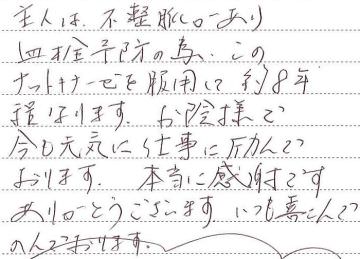 主人は、不整脈があり
血栓予防の為、この
ナットキナーゼを服用して約8年
程なります。お陰様で
今も元気に仕事に励んで
おります。本当に感謝です
ありがとうございます。いつも喜こんで
のんでおります。